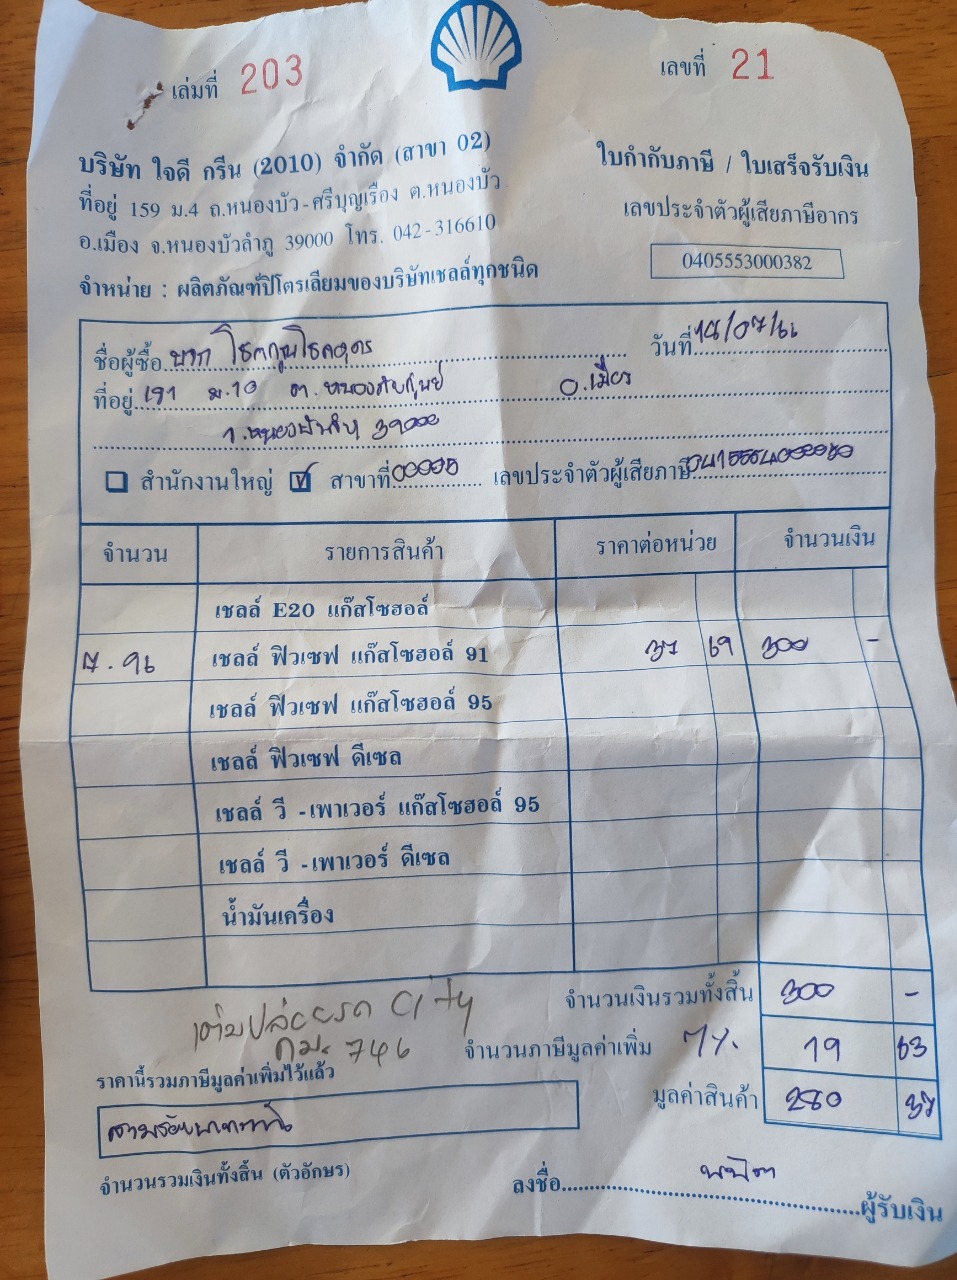 เล่มที่ 203
เลขที่ 21
บริษัท ใจดี กรีน (2010) จำกัด (สาขา 02)
ที่อยู่ 159 ม.4 ถ.หนองบัว-ศรีบุญเรือง ต.หนองบัว
อ.เมือง จ.หนองบัวลำภู 39000 โทร. 042-316610
จำหน่าย : ผลิตภัณฑ์ปิโตรเลียมของบริษัทเชลล์ทุกชนิด
ใบกำกับภาษี / ใบเสร็จรับเงิน
เลขประจำตัวผู้เสียภาษีอากร
0405553000382
ชื่อผู้ซื้อ วันที่ 18/07/66
ที่อยู่ 191 ม.10 ต. อ.เมือง
จ. 39000
สำนักงานใหญ่ สาขาที่ เลขประจำตัวผู้เสียภาษี
จำนวน รายการสินค้า ราคาต่อหน่วย จำนวนเงิน
เชลล์ E20 แก๊สโซฮอล์
7.96 เชลล์ ฟิวเซฟ แก๊สโซฮอล์ 91 37 69 300 -
เชลล์ ฟิวเซฟ แก๊สโซฮอล์ 95
เชลล์ ฟิวเซฟ ดีเซล
เชลล์ วี -เพาเวอร์ แก๊สโซฮอล์ 95
เชลล์ วี -เพาเวอร์ ดีเซล
น้ำมันเครื่อง
จำนวนเงินรวมทั้งสิ้น 300 -
เติมปล่อยรถ City
กม. 746
จำนวนภาษีมูลค่าเพิ่ม 7%. 19 63
ราคานี้รวมภาษีมูลค่าเพิ่มไว้แล้ว
มูลค่าสินค้า 280 37
สามร้อยบาทถ้วน
จำนวนรวมเงินทั้งสิ้น (ตัวอักษร)
ลงชื่อ ผู้รับเงิน